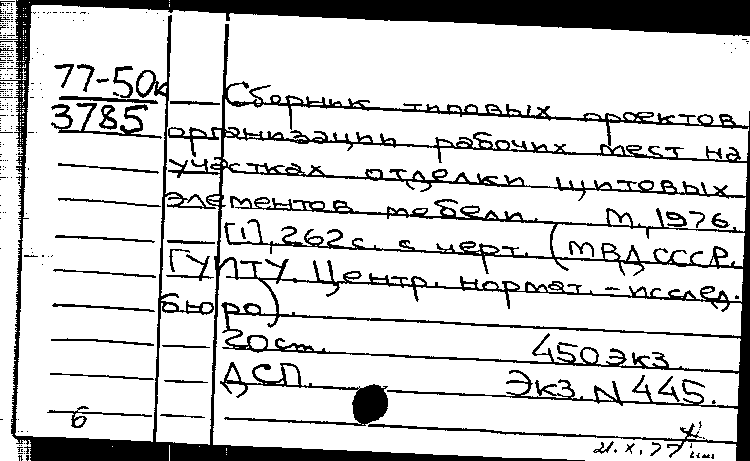 77-50к
3785
Сборник типовых проектов
организации рабочих мест на
участках отделки щитовых
элементов мебели. М., 1976.
[1], 262 с. с черт. (МВД СССР.
ГУИТУ. Центр. нормат. - исслед.
бюро).
20 см. 450 экз.
ДСП. Экз. N 445.
6
21.X.77